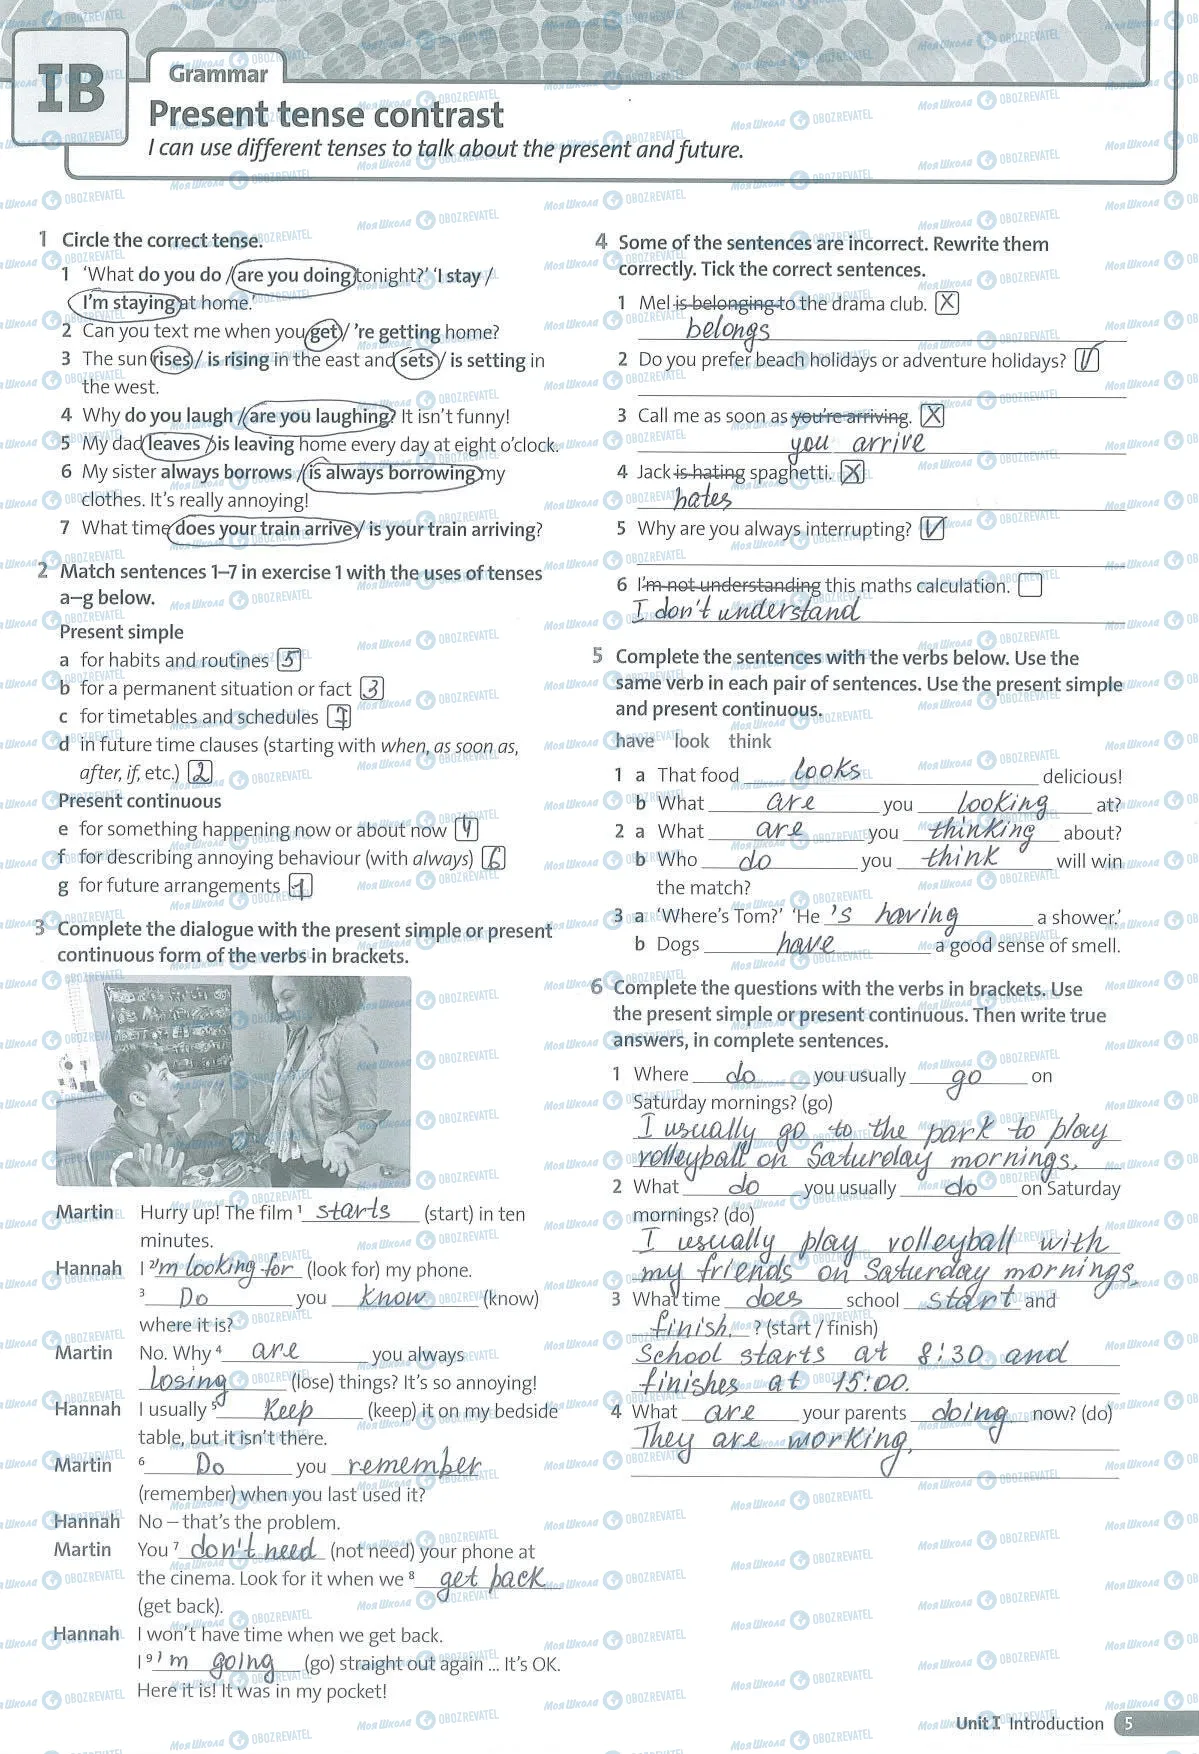 IB
Grammar
Present tense contrast
I can use different tenses to talk about the present and future.
1 Circle the correct tense.
1 ‘What do you do / are you doing tonight?’ ‘I stay /
I’m staying at home.’
2 Can you text me when you get / ’re getting home?
3 The sun rises / is rising in the east and sets / is setting in
the west.
4 Why do you laugh / are you laughing? It isn’t funny!
5 My dad leaves / is leaving home every day at eight o’clock.
6 My sister always borrows / is always borrowing my
clothes. It’s really annoying!
7 What time does your train arrive / is your train arriving?
2 Match sentences 1–7 in exercise 1 with the uses of tenses
a–g below.
Present simple
a for habits and routines 5
b for a permanent situation or fact 3
c for timetables and schedules 7
d in future time clauses (starting with when, as soon as,
after, if, etc.) 2
Present continuous
e for something happening now or about now 4
f for describing annoying behaviour (with always) 6
g for future arrangements 1
3 Complete the dialogue with the present simple or present
continuous form of the verbs in brackets.
Martin Hurry up! The film ¹ starts (start) in ten
minutes.
Hannah I ² 'm looking for (look for) my phone.
³ Do you know (know)
where it is?
Martin No. Why ⁴ are you always
losing (lose) things? It’s so annoying!
Hannah I usually ⁵ keep (keep) it on my bedside
table, but it isn’t there.
Martin ⁶ Do you remember
(remember) when you last used it?
Hannah No – that’s the problem.
Martin You ⁷ don't need (not need) your phone at
the cinema. Look for it when we ⁸ get back
(get back).
Hannah I won’t have time when we get back.
I ⁹ 'm going (go) straight out again ... It’s OK.
Here it is! It was in my pocket!
4 Some of the sentences are incorrect. Rewrite them
correctly. Tick the correct sentences.
1 Mel is belonging to the drama club. X
belongs
2 Do you prefer beach holidays or adventure holidays? V
3 Call me as soon as you’re arriving. X
you arrive
4 Jack is hating spaghetti. X
hates
5 Why are you always interrupting? V
6 I’m not understanding this maths calculation.
I don't understand
5 Complete the sentences with the verbs below. Use the
same verb in each pair of sentences. Use the present simple
and present continuous.
have look think
1 a That food looks delicious!
b What are you looking at?
2 a What are you thinking about?
b Who do you think will win
the match?
3 a ‘Where’s Tom?’ ‘He 's having a shower.’
b Dogs have a good sense of smell.
6 Complete the questions with the verbs in brackets. Use
the present simple or present continuous. Then write true
answers, in complete sentences.
1 Where do you usually go on
Saturday mornings? (go)
I usually go to the park to play
volleyball on Saturday mornings.
2 What do you usually do on Saturday
mornings? (do)
I usually play volleyball with
my friends on Saturday mornings.
3 What time does school start and
finish. ? (start / finish)
School starts at 8:30 and
finishes at 15:00.
4 What are your parents doing now? (do)
They are working.
Unit I Introduction 5
Моя Школа OBOZREVATEL